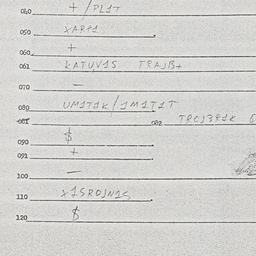 040 + /PLIT
050 XAPPI
060 +
061 KATUVIS TRAJB+
070 —
080 UMITIK/IMITIT
081 082 TROJBRIK
090 $
091 +
100 —
110 XISROJNIS
120 $